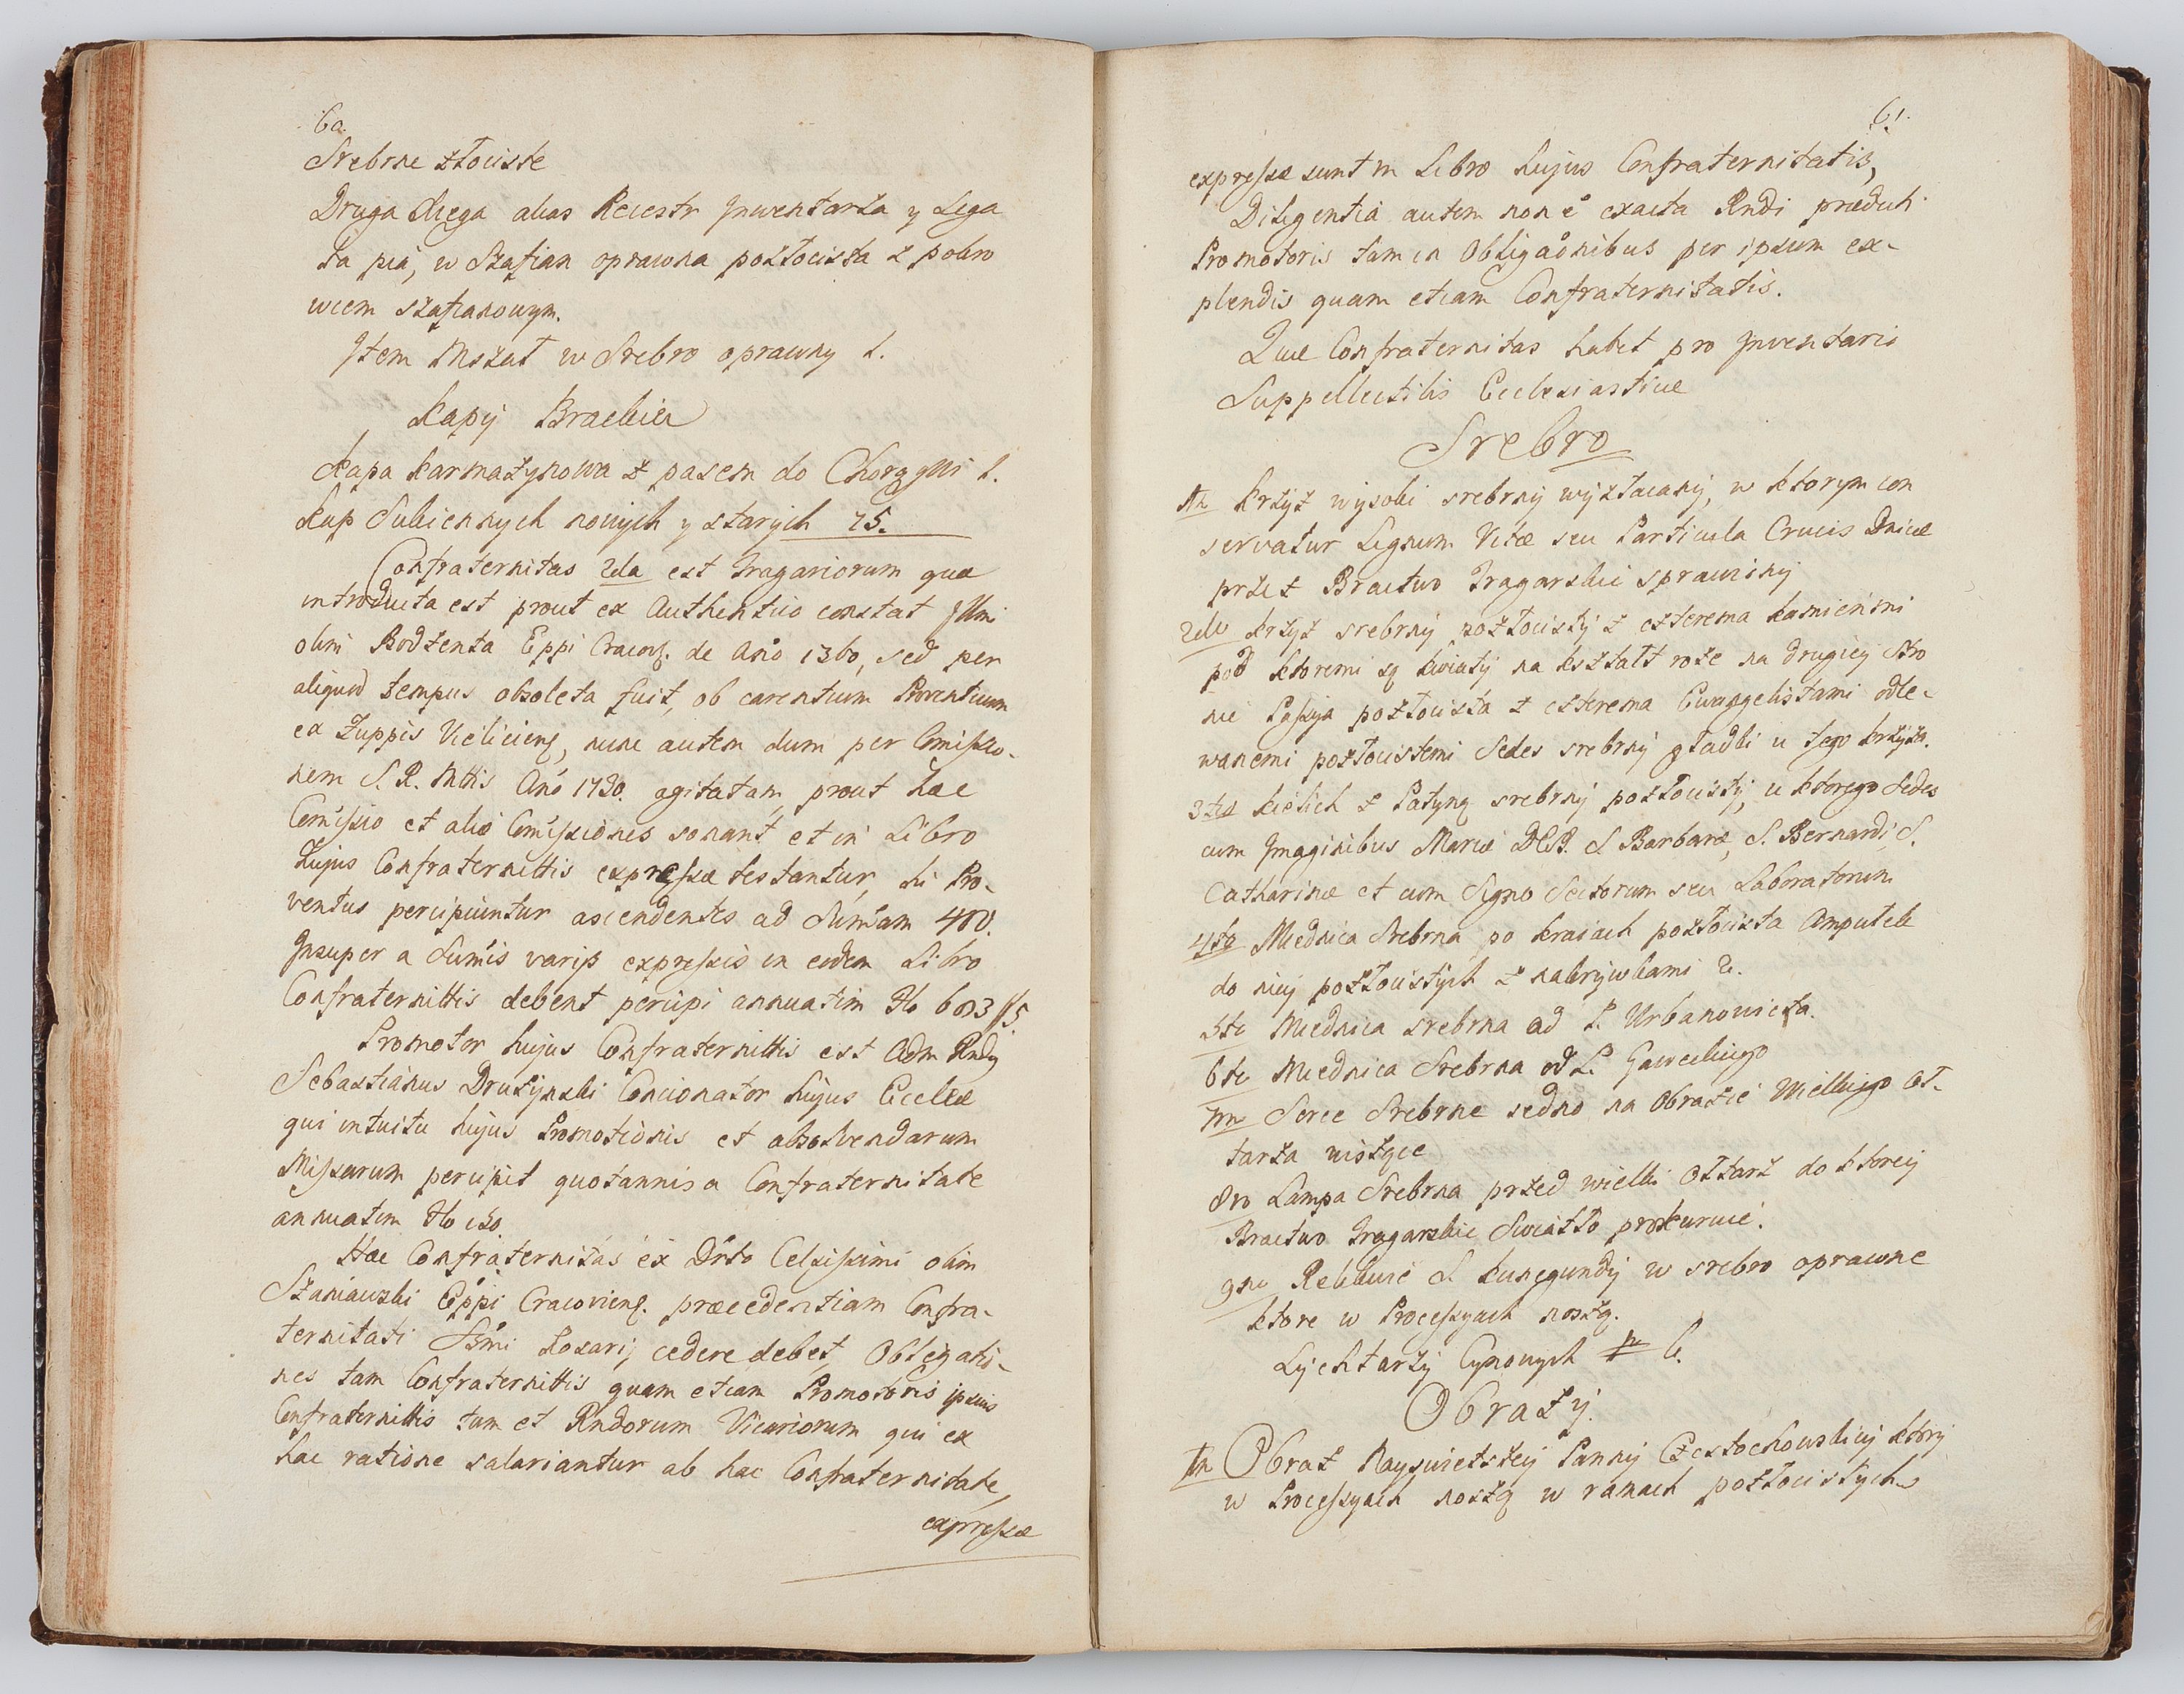 60.
Srebrne złociste
Druga Xięga alias Reiestr Jnwentarża y Lega
ta pia, w Szafian oprawna pozłocista z pokro
wcem szafianowym.
Jtem Mszał w Srebro oprawny 1.
Kapÿ Brackie
Kapa karmazynowa z pasem do Chorągwi 1.
Kap Sukiennych nowych y starych 25.
Confraternitas 2da est Tragariorum quæ
introducta est prout ex Authentico constat Jllmi
olim Bodzenta Eppi Cracov. de Año 1360, sed per
aliquod tempus obsoleta fuit, ob carentium Proventuum
ex Zuppis Vieliciens, nunc autem dum per Comissio-
nem S. R. Mttis Año 1730. agitatam, prout hæc
Comissio et aliæ Comissiones sonant et in Libro
hujus Confraternittis expressæ testantur, hi Pro-
ventus percipiuntur ascendentes ad Sumam 400.
Jnsuper a Sumis varijs expressis in eodem Libro
Confraternittis debent percipi annuatim
Promotor hujus Confraternittis est Adm Rndg
Sebastianus Drużÿnski Concionator hujus Ecclæ
qui intuitu hujus Promotionis et absolvendarum
Missarum percipit quotannis a Confraternitate
annuatim
Hæc Confraternitas ex Drto Celsissimi olim
Szaniawski Eppi Cracoviens. præcedentiam Confra-
ternitati Ssmi Rosarij, cedere debet, Obligatio-
nes tam Confraternittis quam etiam Promotoris ipsius
Confraternittis tum et Rndorum Vicariorum qui ex
hac ratione salariantur ab hac Confraternitate,
expressæ
61.
expressæ sunt in Libro hujus Confraternitatis,
Diligentia autem non é exacta Rndi prædicti
Promotoris tam in Obligaonibus per ipsum ex-
plendis quam etiam Confraternitatis.
Quæ Confraternitas habet pro Jnventario
Suppellectilis Ecclesiasticæ
Srebro
1n Krzÿż wÿsoki srebrnÿ wÿzłacanÿ, w ktorym con
servatur Lignum Vitæ seu Particula Crucis Dnicæ
przez Bractwo Tragarskie sprawionÿ
2do Krzÿż srebrnÿ pozłocistÿ z czterema kamieniami
pod ktoremi są kwiatÿ na kształt roże na drugieÿ stro
nie Passÿa pozłocista z czterema Ewangelistami odle-
wanemi pozłocistemi Sedes srebrnÿ gładki u tego krzÿża.
3tio Kielich z Patyną srebrnÿ pozłocistÿ, u ktorego Sedes
cum Jmaginibus Mariæ S Barbaræ, S. Bernardi, S.
Catharinæ et cum Signo Sectorum seu Laboratorum
4to Miednica Srebrna, po kraiach pozłocista Ampułek
do nieÿ pozłocistÿch z nakrÿwkami 2.
5to Miednica srebrna od P. Urbanowicza.
6to Miednica Srebrna od P. Gaweckiego
7m Serce Srebrne iedno na Obrazie Wielkiego Oł-
tarza wiszące
8vo Lampa Srebrna przed wielki Ołtarz do ktoreÿ
Bractwo Tragarskie Swiatło prokuruie.
9no Relikwie S. Kunegundÿ w srebro oprawne
ktore w Processyach noszą.
Lÿchtarzÿ Cynowych 6.
Obrazÿ.
1n Obraz Nayswietszeÿ Pannÿ Częstochowskieÿ ktorÿ
w Processÿach noszą w ramach pozłocistÿch